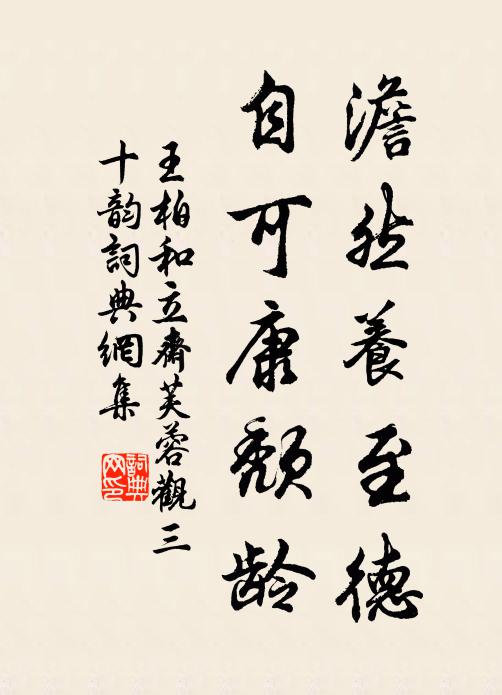 澹然養至德
自可康頹齡
王柏和立齋芙蓉觀三
十韵詞典網集
詞典
网印